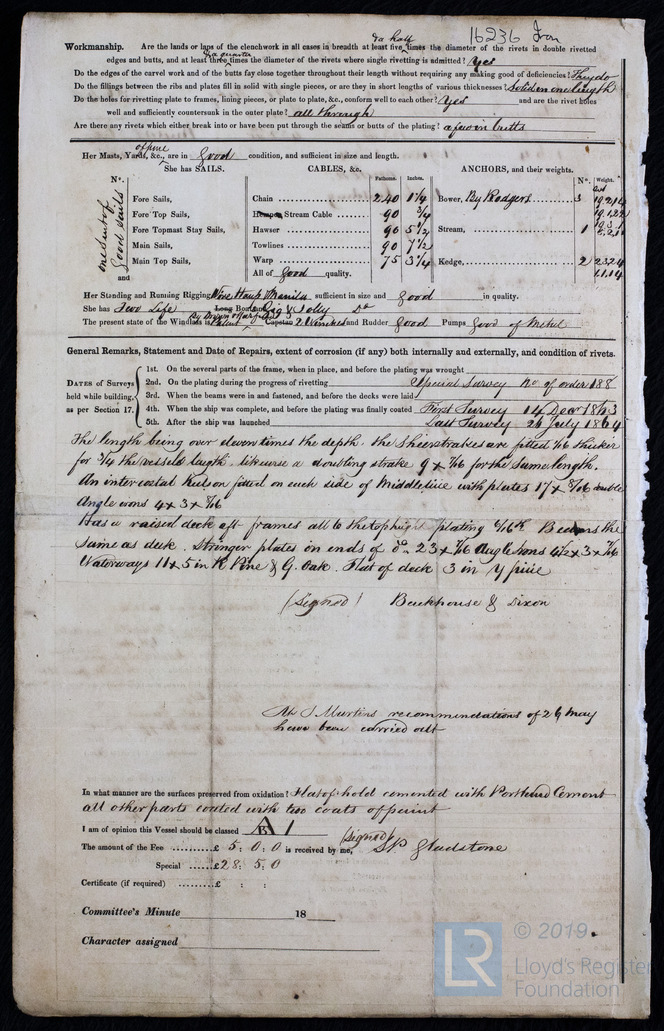 16236 Iron
& a half
Workmanship. Are the lands or laps of the clenchwork in all cases in breadth at least five times the diameter of the rivets in double rivetted
& a quarter
edges and butts, and at least three times the diameter of the rivets where single rivetting is admitted? Yes
Do the edges of the carvel work and of the butts fay close together throughout their length without requiring any making good of deficiencies? They do
Do the fillings between the ribs and plates fill in solid with single pieces, or are they in short lengths of various thicknesses? Solid in one length
Do the holes for rivetting plate to frames, lining pieces, or plate to plate, &c., conform well to each other? Yes and are the rivet holes
well and sufficiently countersunk in the outer plate? all through
Are there any rivets which either break into or have been put through the seams or butts of the plating? a few in butts
of pine
Her Masts, Yards, &c., are in good condition, and sufficient in size and length.
She has SAILS. CABLES, &c. ANCHORS, and their weights.
N°. Fathoms. Inches. N°. Weight.
one Suit of good Sails
Fore Sails, Chain 240 1¼ Bower, By Rodgers 3
Fore Top Sails, Hempen Stream Cable 90 ¾
Fore Topmast Stay Sails, Hawser 90 5½ Stream, 1
Main Sails, Towlines 90 7½
Main Top Sails, Warp 75 3¼ Kedge, 2 2.3.2.4
and All of good quality. 1.1.14
Her Standing and Running Rigging Wire Hemp & Manila sufficient in size and good in quality.
She has Two Life Long Boat and Gig & Jolly Do
The present state of the Windlass is Patent Capstan 2 Winches and Rudder good Pumps good of Metal
General Remarks, Statement and Date of Repairs, extent of corrosion (if any) both internally and externally, and condition of rivets.
DATES of Surveys held while building, as per Section 17.
1st. On the several parts of the frame, when in place, and before the plating was wrought
2nd. On the plating during the progress of rivetting Special Survey No of order 188
3rd. When the beams were in and fastened, and before the decks were laid
4th. When the ship was complete, and before the plating was finally coated First Survey 14 Decr 1863
5th. After the ship was launched Last Survey 26 July 1864
The length being over eleven times the depth. the Sheerstrakes are fitted 1/16 thicker
for ¾ the vessels length. likewise a doubling strake 9 x 7/16 for the same length.
An intercostal Keelson fitted on each side of Middleline with plates 17 x 8/16 double
Angle irons 4 x 3 x 8/16
Has a raised deck aft frames all to the top height plating 6/16th Beams the
same as deck. Stringer plates on ends of Do 23 x 7/16 Angle Irons 4½ x 3 x 7/16
Waterways 11 x 5 in R. Pine & G. Oak. Flat of deck 3 in Y pine
(Signed) Backhouse & Dixon
Mr J Martins recommendations of 26 May
have been carried out
In what manner are the surfaces preserved from oxidation? Flat of hold cemented with Portland Cement
all other parts coated with two coats of paint
I am of opinion this Vessel should be classed A 1
The amount of the Fee £ 5 : 0 : 0 is received by me, (Signed) Gladstone
Special £28 : 5 : 0
Certificate (if required) £ : :
Committee's Minute 18
Character assigned
LR © 2019.
Lloyd's Register
Foundation